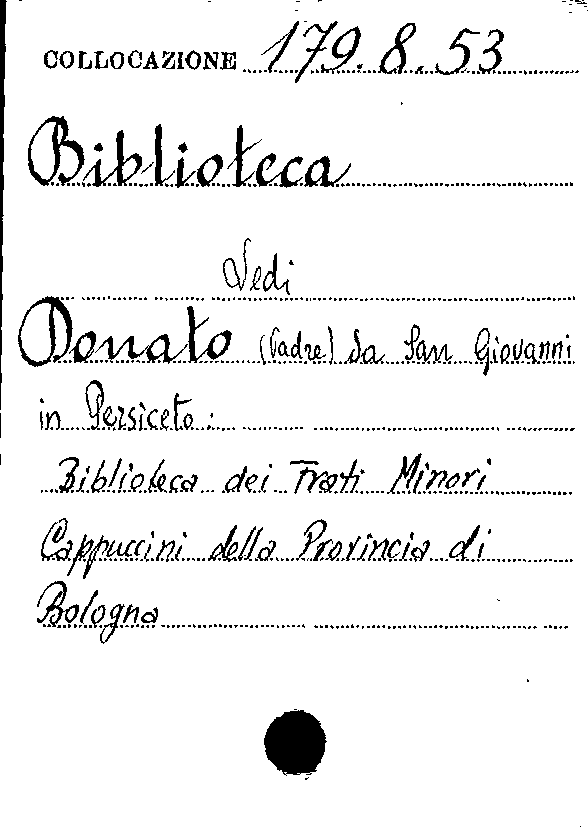 COLLOCAZIONE 179.8.53
Biblioteca
Vedi
Donato (Padre) da San Giovanni
in Persiceto:
Biblioteca dei Frati Minori
Cappuccini della Provincia di
Bologna